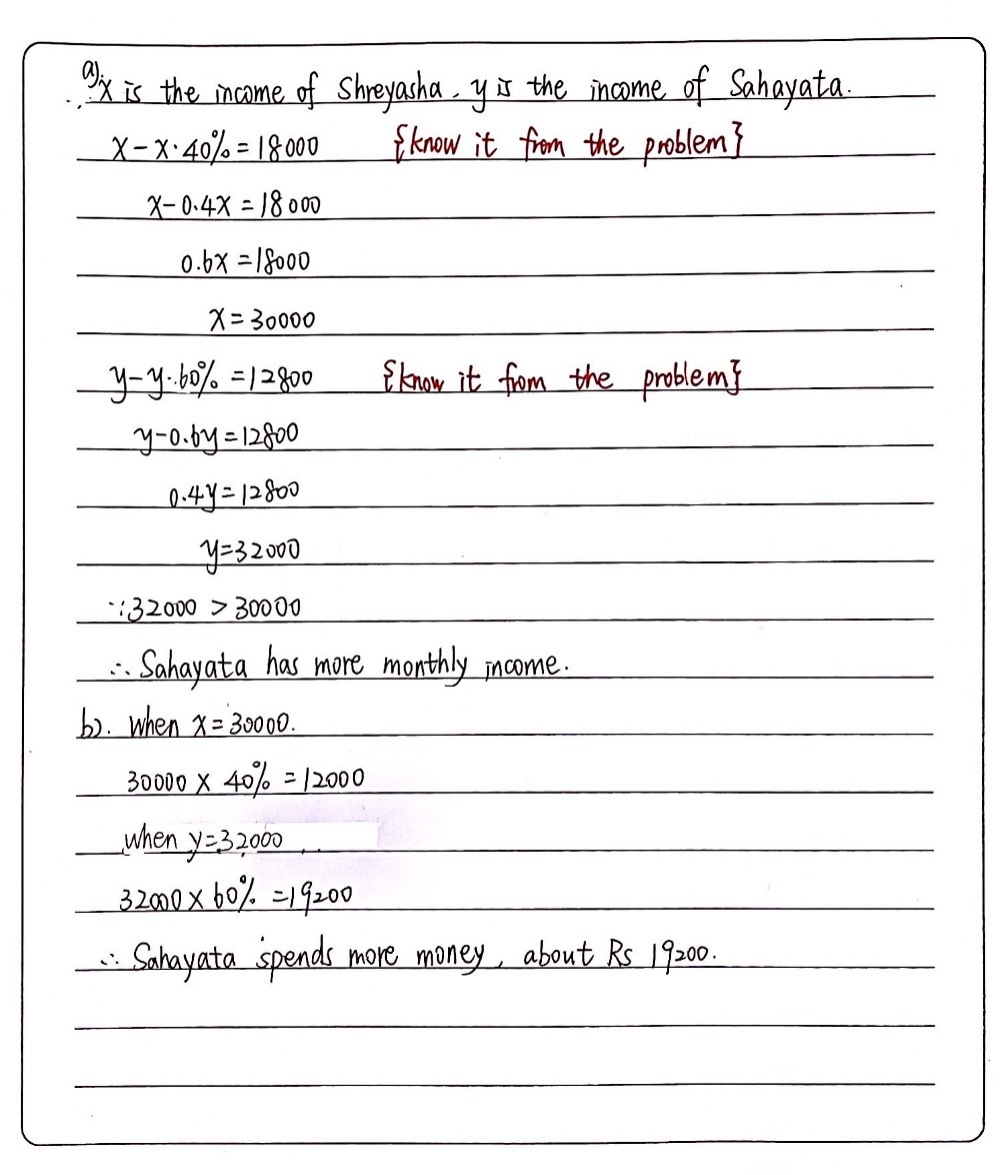 a). x is the income of Shreyasha, y is the income of Sahayata.
x-x·40%=18000 {know it from the problem}
x-0.4x=18000
0.6x=18000
x=30000
y-y·60%=12800 {know it from the problem}
y-0.6y=12800
0.4y=12800
y=32000
∵32000 > 30000
∴ Sahayata has more monthly income.
b). when x=30000.
30000 × 40% = 12000
when y=32000
32000 × 60% =19200
∴ Sahayata spends more money, about Rs 19200.